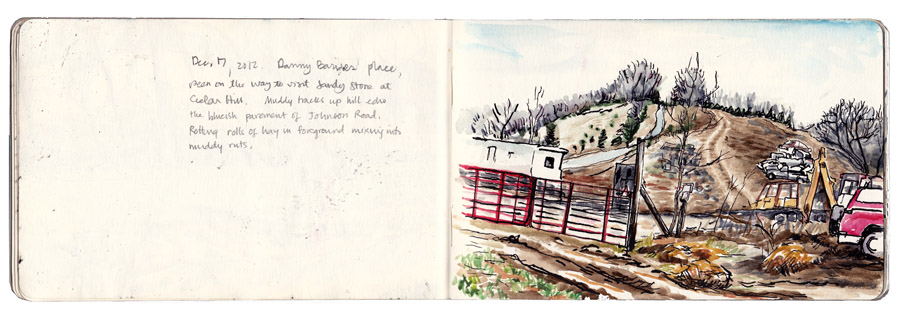 Dec. 17, 2012. Danny place,
seen on the way to visit Sandy Stone at
Cedar Hill. Muddy tracks up hill echo
the blueish pavement of Johnson Road.
Rotting rolls of hay in foreground mixing into
muddy ruts.